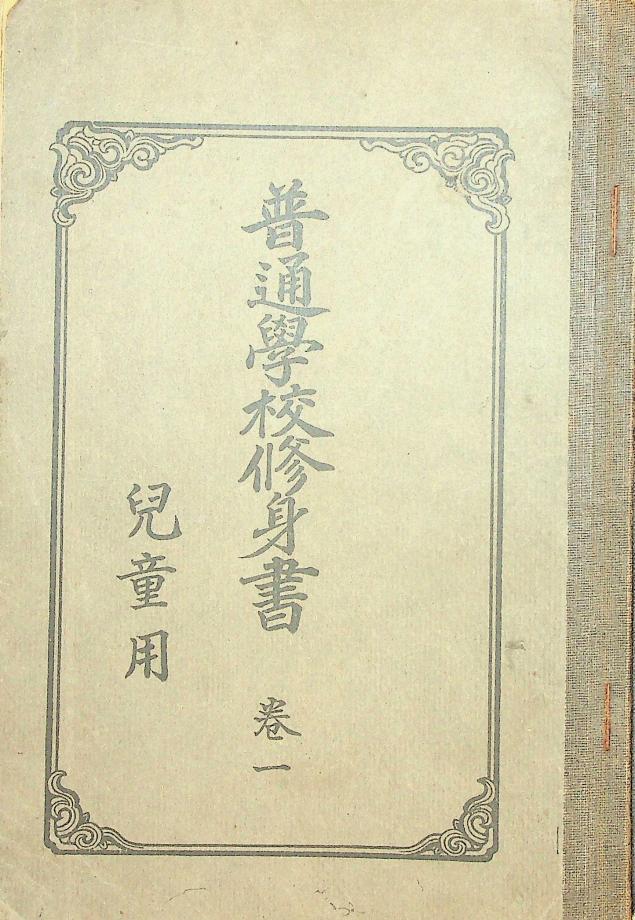 普通學校修身書 卷一
兒童用